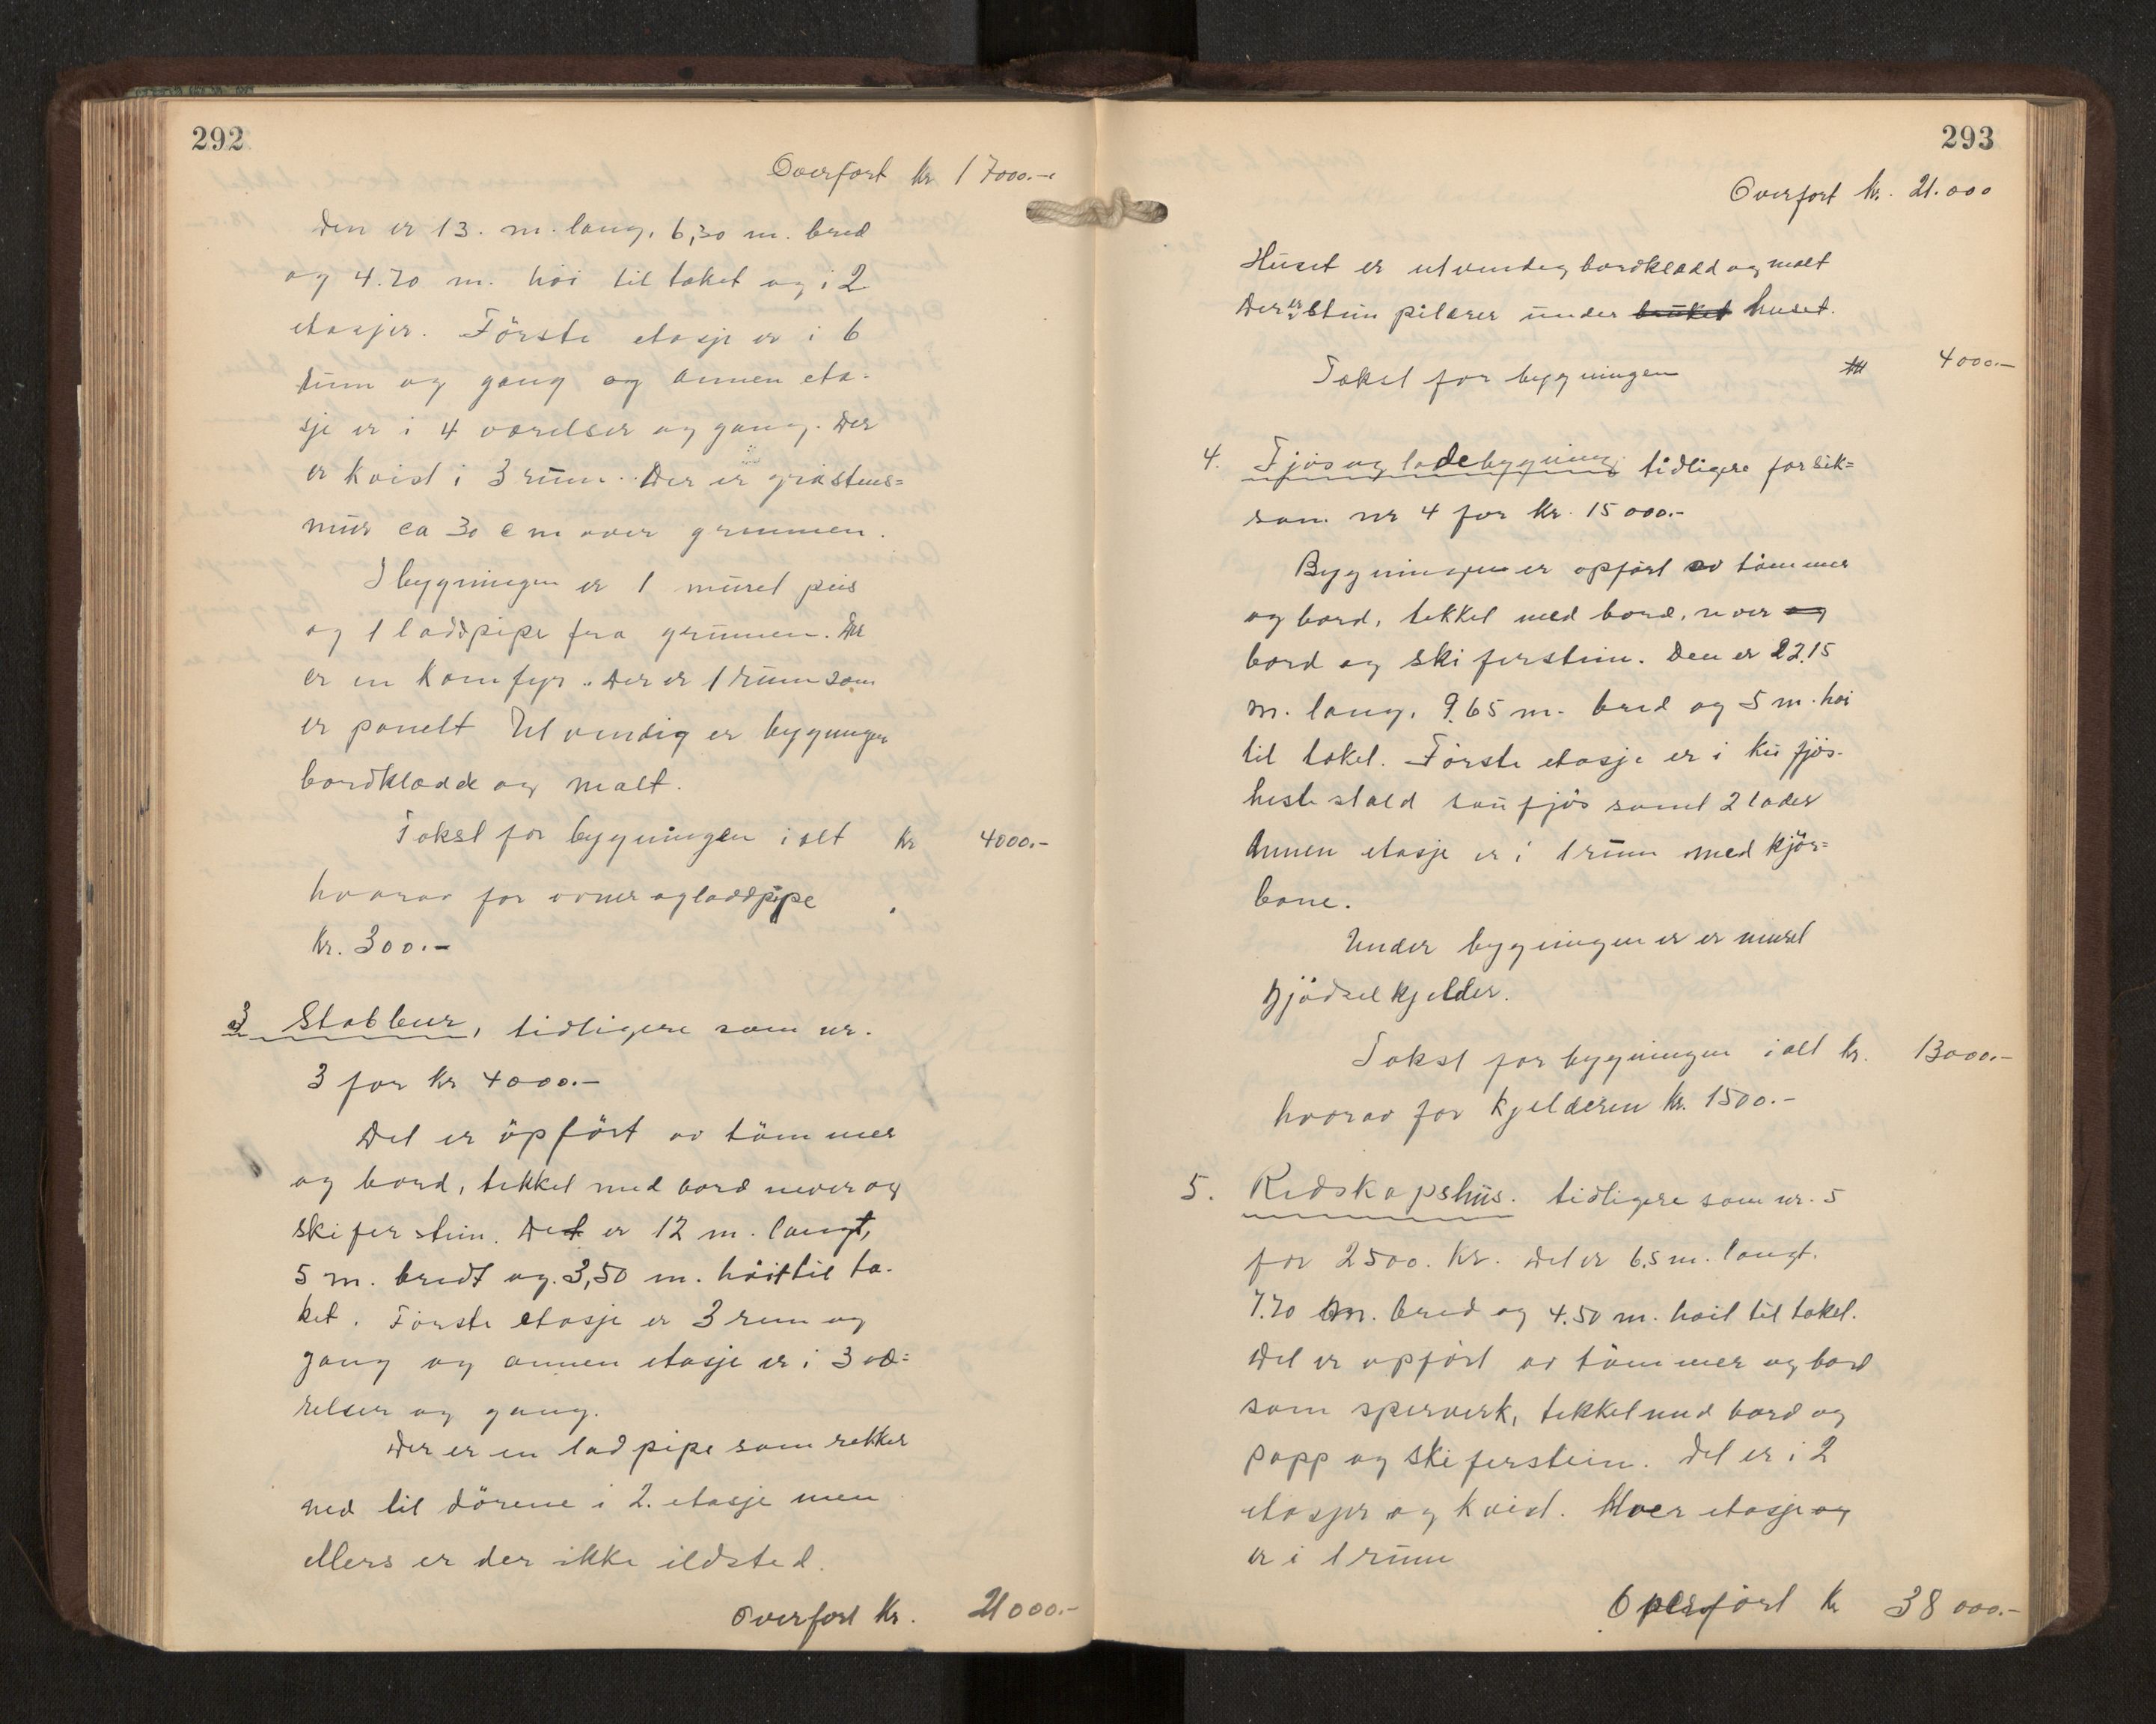 292
Overført kr 17000.-
Den er 13. m. lang, 6,30 m. bred
og 4.70 m. høi til taket og i 2
etasjer. Förste etasje er i 6
rum og gang og annen eta-
sje er i 4 værelser og gang. Der
er kvist i 3 rum. Der er gråstens=
mur ca 30 cm over grunnen.
I bygningen er 1 muret peis
og 1 laddpipe fra grunnen. Der
er en komfyr. Der er 1 rum som
er panelt Utvendig er bygningen
bordklædd og malt.
Takst for bygningen i alt kr 4000.-
hvorav for ovner og laddpipe
kr. 300.-
3 Stabbur, tidligere som nr.
3 for kr 4000.-
Det er öpfört av tömmer
og bord, tekket med bord never og
skiferstein. Det er 12 m. langt,
5 m. bredt og 3,50 m. höit til ta-
ket. Förste etasje er 3 rum og
gang og annen etasje er i 3 væ=
relser og gang.
Der er en ladpipe som rekker
ned til dörene i 2. etasje men
ellers er der ikke ildsted.
Overfört kr. 21000.-
293
Overfört kr. 21.000
Huset er utvendig bordklædd og malt
Der er stein pilarer under bruket huset.
Takst for bygningen 4000.-
4. Fjös og ladebygning tidligere forsik=
som nr 4 for kr. 15000.-
Bygningen er opfört av tömmer
og bord, tekket med bord, never og
bord og skiferstein. Den er 22.15
m. lang, 9.65 m. bred og 5 m. höi
til taket. Förste etasje er i ku fjös-
hestestald sau fjös samt 2 lader
Annen etasje er i 1 rum med kjör=
bane.
Under bygningen er er muret
gjödselkjelder.
Takst for bygningen i alt kr. 13000.-
hvorav for kjelderen kr. 1500.-
5. Redskapshus. tidligere som nr. 5
for 2500. kr. Det er 6.5 m. langt.
7.70 m. bred og 4.50 m. höit til taket.
Det er opfört av tömmer og bord
som sperverk, tekket med bord og
papp og skiferstein. Det er i 2
etasjer og kvist. Hver etasje og
er i 1 rum
Overfört kr 38000.-